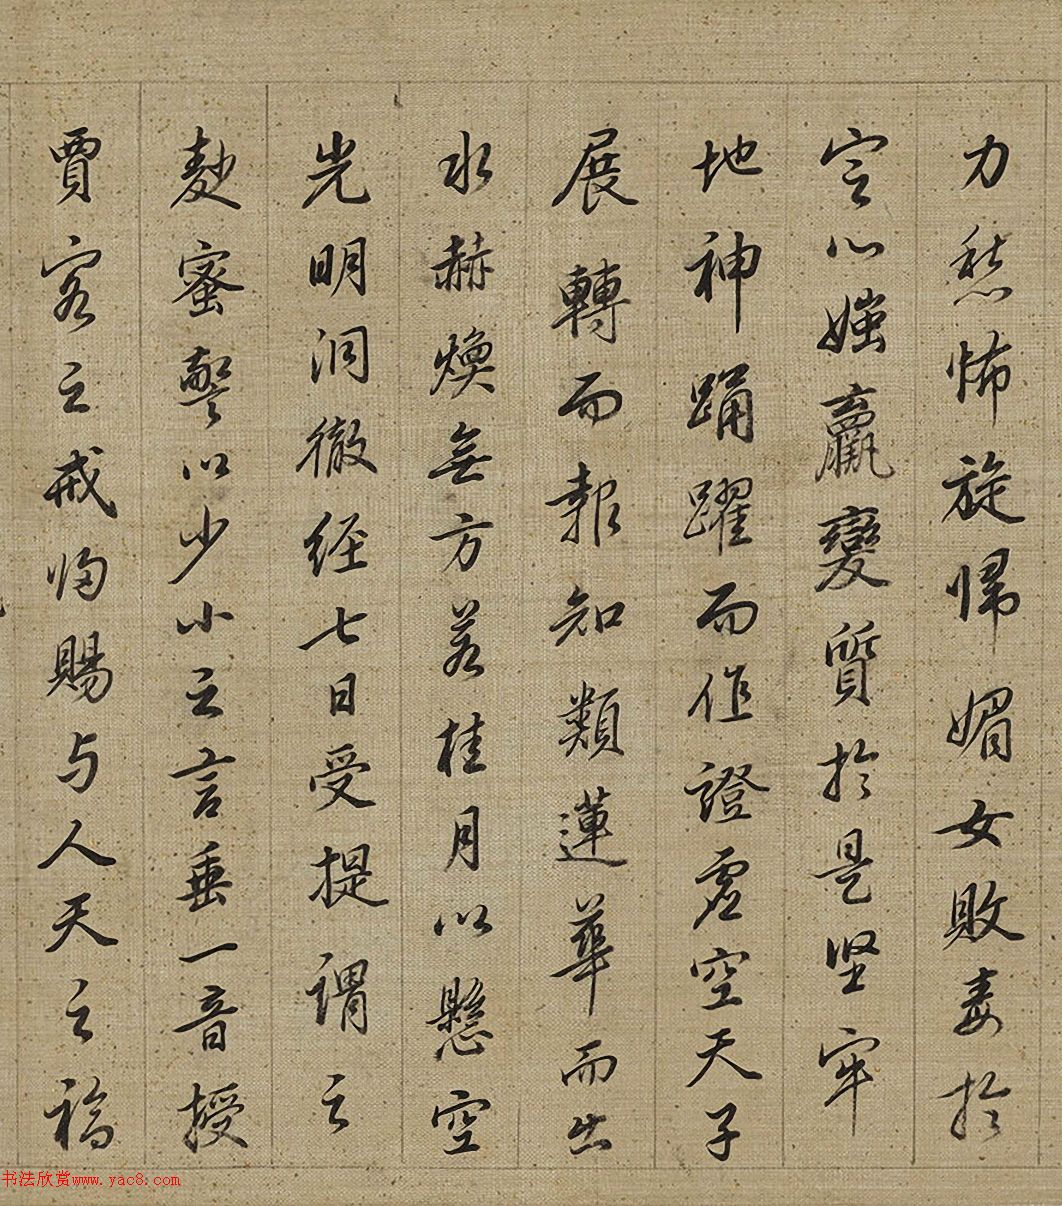 力愁怖旋归媚女败毒於
定心媸羸變質於是坚牢
地神踊躍而作證虚空天子
展轉而報知類蓮華而出
水赫焕無方若桂月以懸空
光明洞徹经七日受提謂之
麨蜜警以少小之言垂一音授
賈客之戒归賜与人天之福
书法欣赏www.yac8.com